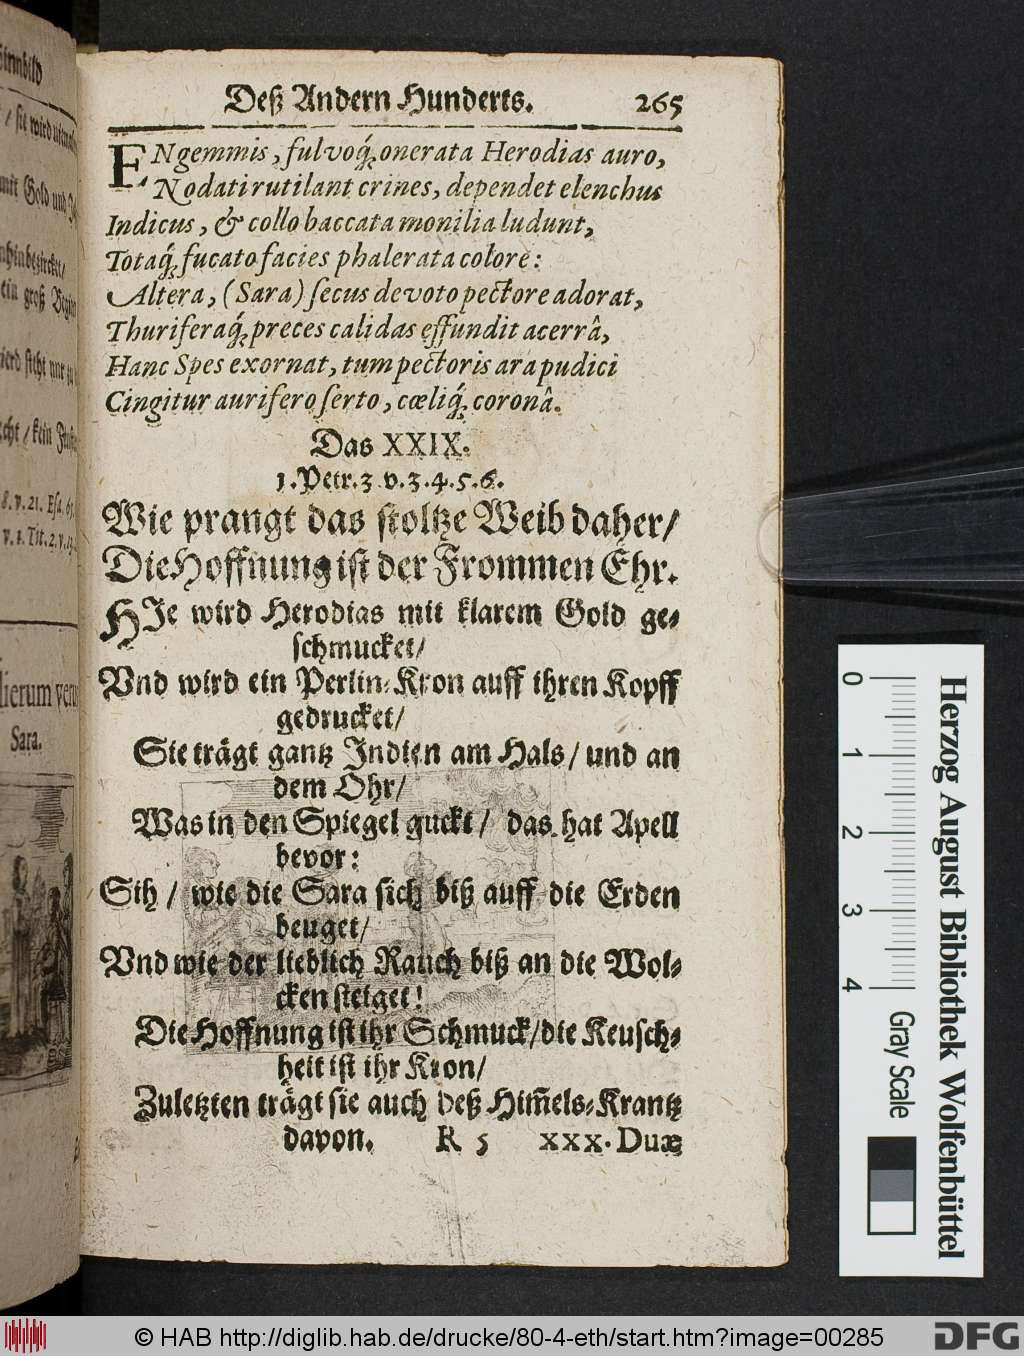 Deß Andern Hunderts. 265
ENgemmis, fulvoq́; onerata Herodias auro,
Nodati rutilant crines, dependet elenchus
Indicus, & collo baccata monilia ludunt,
Totaq́; fucato facies phalerata colore:
Altera, (Sara) secus devoto pectore adorat,
Thuriferaq́; preces calidas effundit acerrâ,
Hanc Spes exornat, tum pectoris ara pudici
Cingitur aurifero serto, cœliq́; coronâ.
Das XXIX.
1. Petr. 3 v. 3. 4. 5. 6.
Wie prangt das stoltze Weib daher/
Die Hoffnung ist der Frommen Ehr.
HIe wird Herodias mit klarem Gold ge-
schmucket/
Vnd wird ein Perlin-Kron auff ihren Kopff
gedrucket/
Sie trägt gantz Indien am Hals/ und an
dem Ohr/
Was in den Spiegel guckt/ das hat Apell
bevor:
Sih/ wie die Sara sich biß auff die Erden
beuget/
Vnd wie der lieblich Rauch biß an die Wol-
cken steiget!
Die Hoffnung ist ihr Schmuck/die Keusch-
heit ist ihr Kron/
Zuletzten trägt sie auch deß Him̃els-Krantz
davon. R 5 XXX. Duæ
sinnbild
/ sie wird
mit Gold und
ein groß
/ kein
8. v. 21. Esa. 61.
v. 1. Tit. 2. v.
Sara.
0 1 2 3 4
Herzog August Bibliothek Wolfenbüttel
Gray Scale
© HAB http://diglib.hab.de/drucke/80-4-eth/start.htm?image=00285
DFG